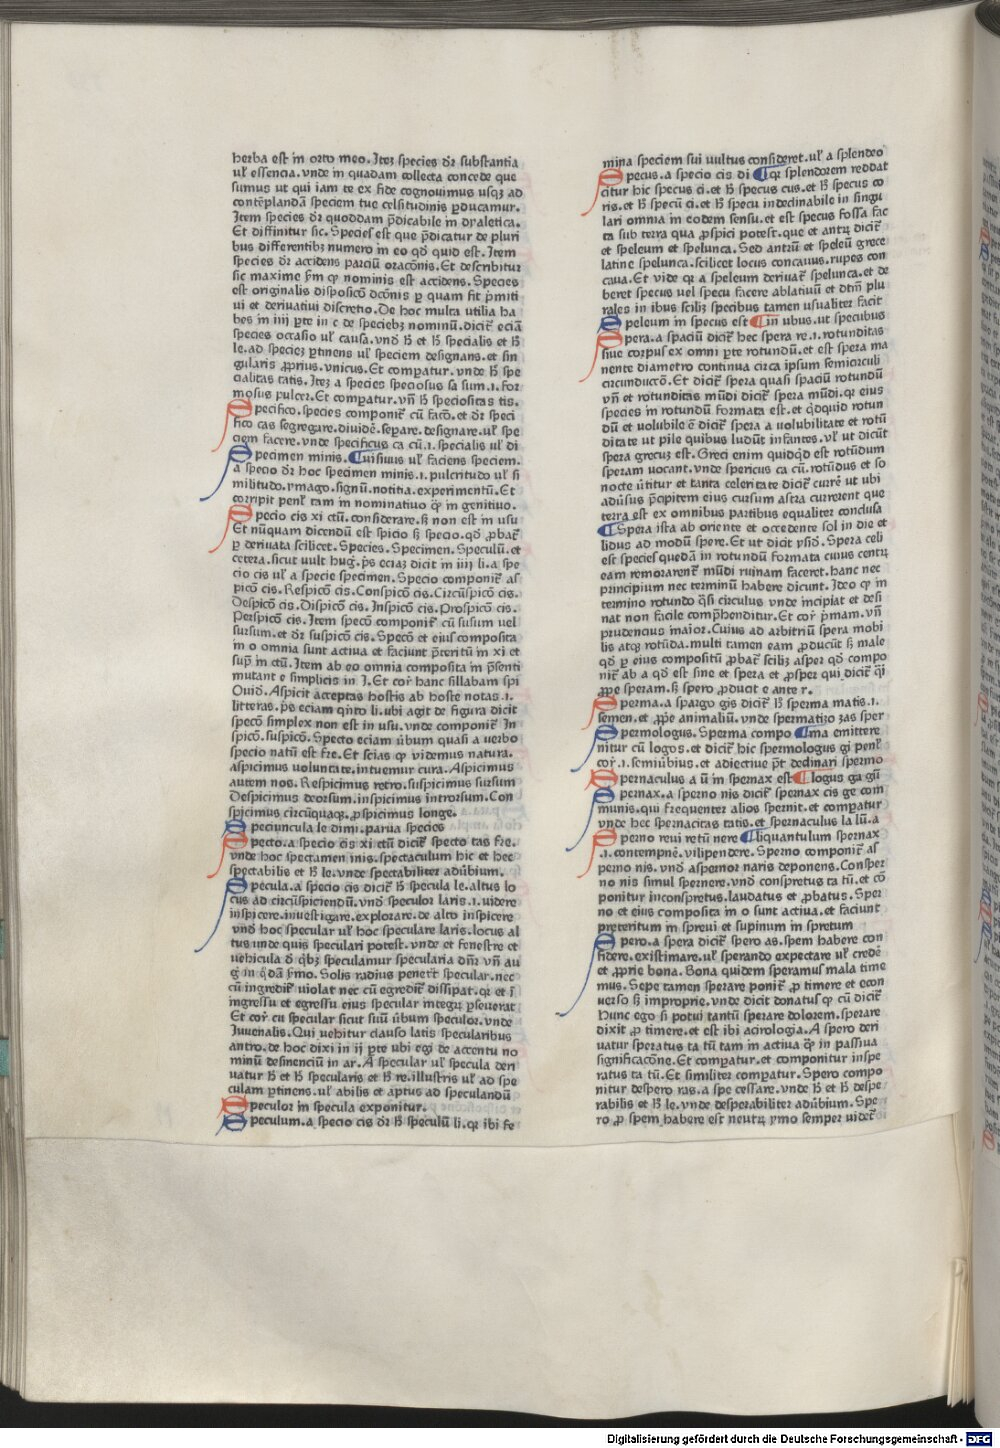 herba est in orto meo. Itez species dr̄ substantia
ul' essencia. vnde in quadam collecta concede que
sumus ut qui iam te ex fide cognouimus usqz ad
contēplandā speciem tue celsitudinis ꝑducamur.
Item species dr̄ quoddam p̄dicabile in dyaletica.
Et diffinitur sic. Species est que p̄dicatur de pluri
bus differentibz numero in eo qd̄ quid est. Item
species dr̄ accidens parciū oracōnis. Et describitur
sic maxime ẜm qꝫ nominis est accidens. Species
est originalis disposicō dcōnis ꝑ quam fit p̄miti
ui et deriuatiui discretio. De hoc multa utilia ha
bes in iiij ꝑte in c de speciebz nominū. dicit̄ eciā
species occasio ul' causa. vnd̄ ħ et ħ specialis et ħ
le. ad speciez ꝑtinens ul' speciem designans. et sin
gularis ꝓprius. vnicus. Et comꝑatur. vnde ħ spe
cialitas tatis. Itez a species speciosus sa sum .i. for
mosus pulcer. Et comꝑatur. vn̄ ħ speciositas tis.
Specifico. species componit̄ cū facō. et dr̄ speci
fico cas segregare. diuidē. seꝑare. designare. ul' spe
ciem facere. vnde specificus ca cū .i. specialis ul' di
Specimen minis. ¶uisiuus ul' faciens speciem.
a specio dr̄ hoc specimen minis .i. pulcritudo ul' si
militudo. ymago. signū. notitia. experimentū. Et
corripit penl' tam in nominatiuo q̄ in genitiuo.
Specio cis xi ctū. considerare. ẜ non est in usu
Et nūquam dicendū est spicio ẜ specio. qd̄ ꝓbat̄
ꝑ deriuata scilicet. Species. Specimen. Speculū. et
cetera. sicut vult hug. p̄s eciaz dicit in iiij li. a spe
cio cis ul' a specie specimen. Specio componit̄ as
picō cis. Respicō cis. Conspicō cis. Circūspicō cis.
Despicō cis. Dispicō cis. Inspicō cis. Prospicō cis.
Perspicō cis. Item specō componit̄ cū susum uel
sursum. et dr̄ suspicō cis. Specō et eius composita
in o omnia sunt actiua et faciunt p̄teritū in xi et
sup̄ in ctū. Item ab eo omnia composita in p̄senti
mutant e simplicis in I. Et cor̄ hanc sillabam spi
Ouid. Aspicit acceptas hostis ab hoste notas .i.
litteras. p̄s eciam qn̄to li. ubi agit de figura dicit
specō simplex non est in usu. vnde componit̄ In
spicō. suspicō. Specto eciam ūbum quasi a uerbo
specio natū est fre. Et scias qꝫ videmus natura.
aspicimus voluntate. intuemur cura. Aspicimus
autem nos. Respicimus retro. suspicimus sursum
Despicimus deorsum. inspicimus introrsum. Con
spicimus circūquaqz. ꝓspicimus longe.
Speciuncula le dimi. parua species
Specto. a specio cis xi ctū dicit̄ specto tas fre.
vnde hoc spectamen inis. spectaculum hic et hec
spectabilis et ħ le. vnde spectabiliter adūbium.
Specula. a specio cis dicit̄ ħ specula le. altus lo
cus ad circūspiciendū. vnd̄ speculor laris .i. videre
inspicere. inuestigare. explorare. de alto inspicere
vnd̄ hoc specular ul' hoc speculare laris. locus al
tus unde quis speculari potest. vnde et fenestre et
uehicula d̄ qbz speculamur specularia dn̄r vn̄ au
g in q̄dā ẜmo. Solis radius penetr̄ specular. nec
cū ingredit̄ uiolat nec cū egredit̄ dissipat. qr et ī
ingressu et egressu eius specular integrꝝ ꝑseuerat
Et cor̄ cu specular sicut suū ūbum speculor. vnde
Iuuenalis. Qui uehitur clauso latis specularibus
antro. de hoc dixi in ij ꝑte ubi egi de accentu no
minū desinenciū in ar. A specular ul' specula deri
uatur ħ et ħ specularis et ħ re. illustris ul' ad spe
culam ꝑtinens. ul' abilis et aptus ad speculandū
Speculor in specula exponitur.
Speculum. a specio cis dr̄ ħ speculū li. qr ibi fe
mina speciem sui uultus consideret. ul' a splendeo
Specus. a specio cis di ¶qr splendorem reddat
citur hic specus ci. et ħ specus cus. et ħ specus co
ris. et ħ specū ci. et ħ specu indeclinabile in singu
lari omnia in eodem sensu. et est specus fossa fac
ta sub terra qua ꝓspici potest. que et antrꝝ dicit̄
et speleum et spelunca. Sed antrū et speleū grece
latine spelunca. scilicet locus concauus. rupes con
caua. Et vide qꝫ a speleum deriuat̄ spelunca. et de
beret specus uel specu facere ablatiuū et dtm̄ plu
rales in ibus scilz specibus tamen usualiter facit
Speleum in specus est ¶in ubus. ut specubus
Spera. a spaciū dicit̄ hec spera re .i. rotunditas
siue corpus ex omni ꝑte rotundū. et est spera ma
nente diametro continua circa ipsum semicirculi
circunductō. Et dicit̄ spera quasi spaciū rotundū
vn̄ et rotunditas mūdi dicit̄ spera mūdi. qr eius
species in rotundū formata est. et q̄dquid rotun
dū et volubile ē dicit̄ spera a uolubilitate et rotū
ditate ut pile quibus ludūt infantes. vl' ut dicūt
spera grecuz est. Greci enim quidqd̄ est rotūdum
speram uocant. vnde spericus ca cū. rotūdus et so
nocte ūtitur et tanta celeritate dicit̄ currē ut ubi
adūsus p̄cipitem eius cursum astra currerent que
terra est ex omnibus partibus equaliter conclusa
¶Spera ista ab oriente et occedente sol in die et
lidus ad modū spere. Et ut dicit ysid. Spera celi
est species quedā in rotundū formata cuius centrꝝ
eam remorarent̄ mūdi ruinam faceret. hanc nec
principium nec terminū habere dicunt. Ideo qꝫ in
termino rotundo q̄si circulus vnde incipiat et desi
nat non facile comp̄henditur. Et cor̄ p̄mam. vn̄
prudencius maior. Cuius ad arbitriū spera mobi
lis atqz rotūda. multi tamen eam ꝓducūt ẜ male
qd̄ ꝑ eius compositū ꝓbat̄ scilz asper qd̄ compo
nit̄ ab a qd̄ est sine et spera et ꝓsper qui dicit̄ q̄i
ꝓpe speram. ẜ spero ꝓducit e ante r.
Sperma. a spargo gis dicit̄ ħ sperma matis .i.
semen. et ꝓp̄e animaliū. vnde spermatizo zas sper
Spermologus. Sperma compo ¶ma emittere
nitur cū logos. et dicit̄ hic spermologus gi penl'
cor̄ .i. semiūbius. et adiectiue pn̄t declinari spermo
Spernaculus a ū in spernax est ¶logus ga gū
Spernax. a sperno nis dicit̄ spernax cis ge com
munis. qui frequenter alios spernit. et comꝑatur
vnde hec spernacitas tatis. et spernaculus la lū. a
Sperno reui retū nere ¶liquantulum spernax
.i. contempnē. vilipendere. Sperno componit̄ as
perno nis. vnd̄ aspernor naris deponens. Consper
no nis simul spernere. vnd̄ conspretus ta tū. et cō
ponitur inconspretus. laudatus et ꝓbatus. Sper
no et eius composita in o sunt actiua. et faciunt
preteritum in spreui et supinum in spretum
Spero. a spera dicit̄ spero as. spem habere con
fidere. existimare. ul' sperando expectare ul' credē
et ꝓprie bona. Bona quidem speramus mala time
mus. Sepe tamen sperare ponit̄ ꝓ timere et econ
uerso ẜ improprie. vnde dicit donatus qꝫ cū dicit̄
Hunc ego si potui tantū sperare dolorem. sperare
dixit ꝓ timere. et est ibi acirologia. A spero deri
uatur speratus ta tū tam in actiua q̄ in passiua
significacōne. Et comꝑatur. et componitur inspe
ratus ta tū. Et similiter comꝑatur. Spero compo
nitur despero ras. a spe cessare. vnde ħ et ħ despe
rabilis et ħ le. vnde desperabiliter adūbium. Spe
ro ꝓ spem habere est neutrꝝ ymo semper uidet̄
Digitalisierung gefördert durch die Deutsche Forschungsgemeinschaft - DFG